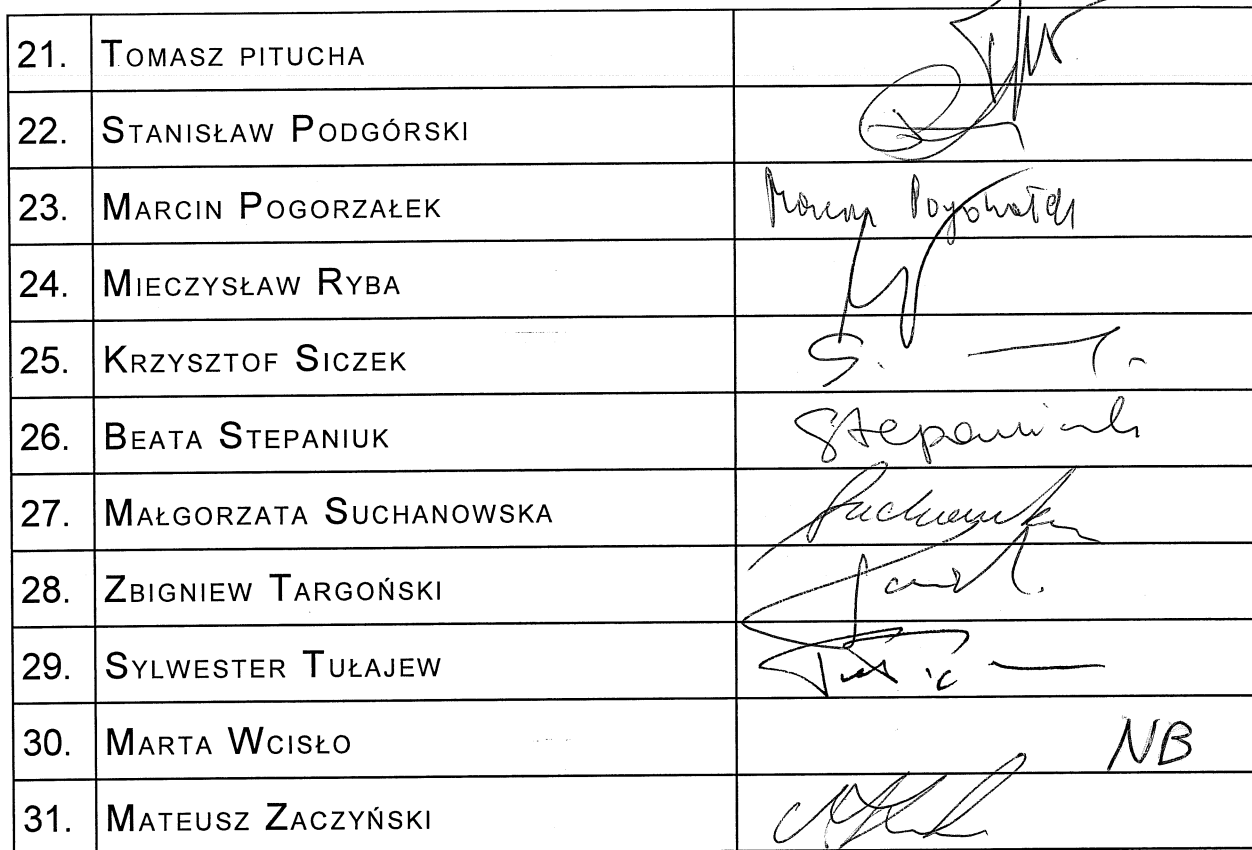 21. TOMASZ PITUCHA
22. STANISŁAW PODGÓRSKI
23. MARCIN POGORZAŁEK Marcin Pogorzałek
24. MIECZYSŁAW RYBA
25. KRZYSZTOF SICZEK S.
26. BEATA STEPANIUK Stepaniuk
27. MAŁGORZATA SUCHANOWSKA
28. ZBIGNIEW TARGOŃSKI
29. SYLWESTER TUŁAJEW
30. MARTA WCISŁO NB
31. MATEUSZ ZACZYŃSKI